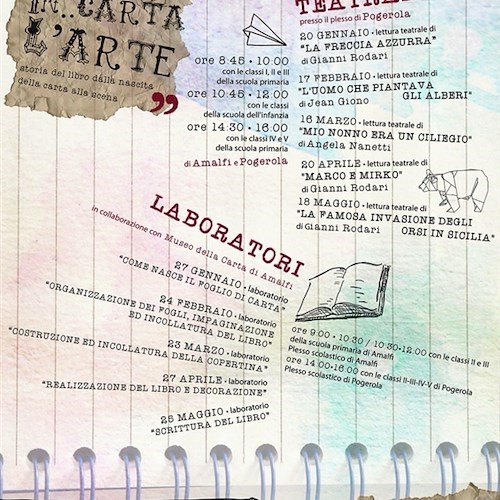 IN..CARTA
L'ARTE
storia del libro dalla nascita
della carta alla scena
ore 8:45 • 10:00
con le classi I, II e III
della scuola primaria
ore 10:45 • 12:00
con le classi
della scuola dell'infanzia
ore 14:30 • 16:00
con le classi IV e V
della scuola primaria
di Amalfi e Pogerola
presso il plesso di Pogerola
20 GENNAIO • lettura teatrale di
"LA FRECCIA AZZURRA"
di Gianni Rodari
17 FEBBRAIO • lettura teatrale di
"L'UOMO CHE PIANTAVA
GLI ALBERI"
di Jean Giono
16 MARZO • lettura teatrale di
"MIO NONNO ERA UN CILIEGIO"
di Angela Nanetti
20 APRILE • lettura teatrale di
"MARCO E MIRKO"
di Gianni Rodari
18 MAGGIO • lettura teatrale di
"LA FAMOSA INVASIONE DEGLI
ORSI IN SICILIA"
di Gianni Rodari
LABORATORI
in collaborazione con Museo della Carta di Amalfi
27 GENNAIO • laboratorio
"COME NASCE IL FOGLIO DI CARTA"
24 FEBBRAIO • laboratorio
"ORGANIZZAZIONE DEI FOGLI, IMPAGINAZIONE
ED INCOLLATURA DEL LIBRO"
23 MARZO • laboratorio
"COSTRUZIONE ED INCOLLATURA DELLA COPERTINA"
27 APRILE • laboratorio
"REALIZZAZIONE DEL LIBRO E DECORAZIONE"
25 MAGGIO • laboratorio
"SCRITTURA DEL LIBRO"
ore 9:00 • 10:30 / 10:30•12:00 con le classi II e III
della scuola primaria di Amalfi
Plesso scolastico di Amalfi
ore 14:00•16:00 con le classi II-III-IV-V di Pogerola
Plesso scolastico di Pogerola